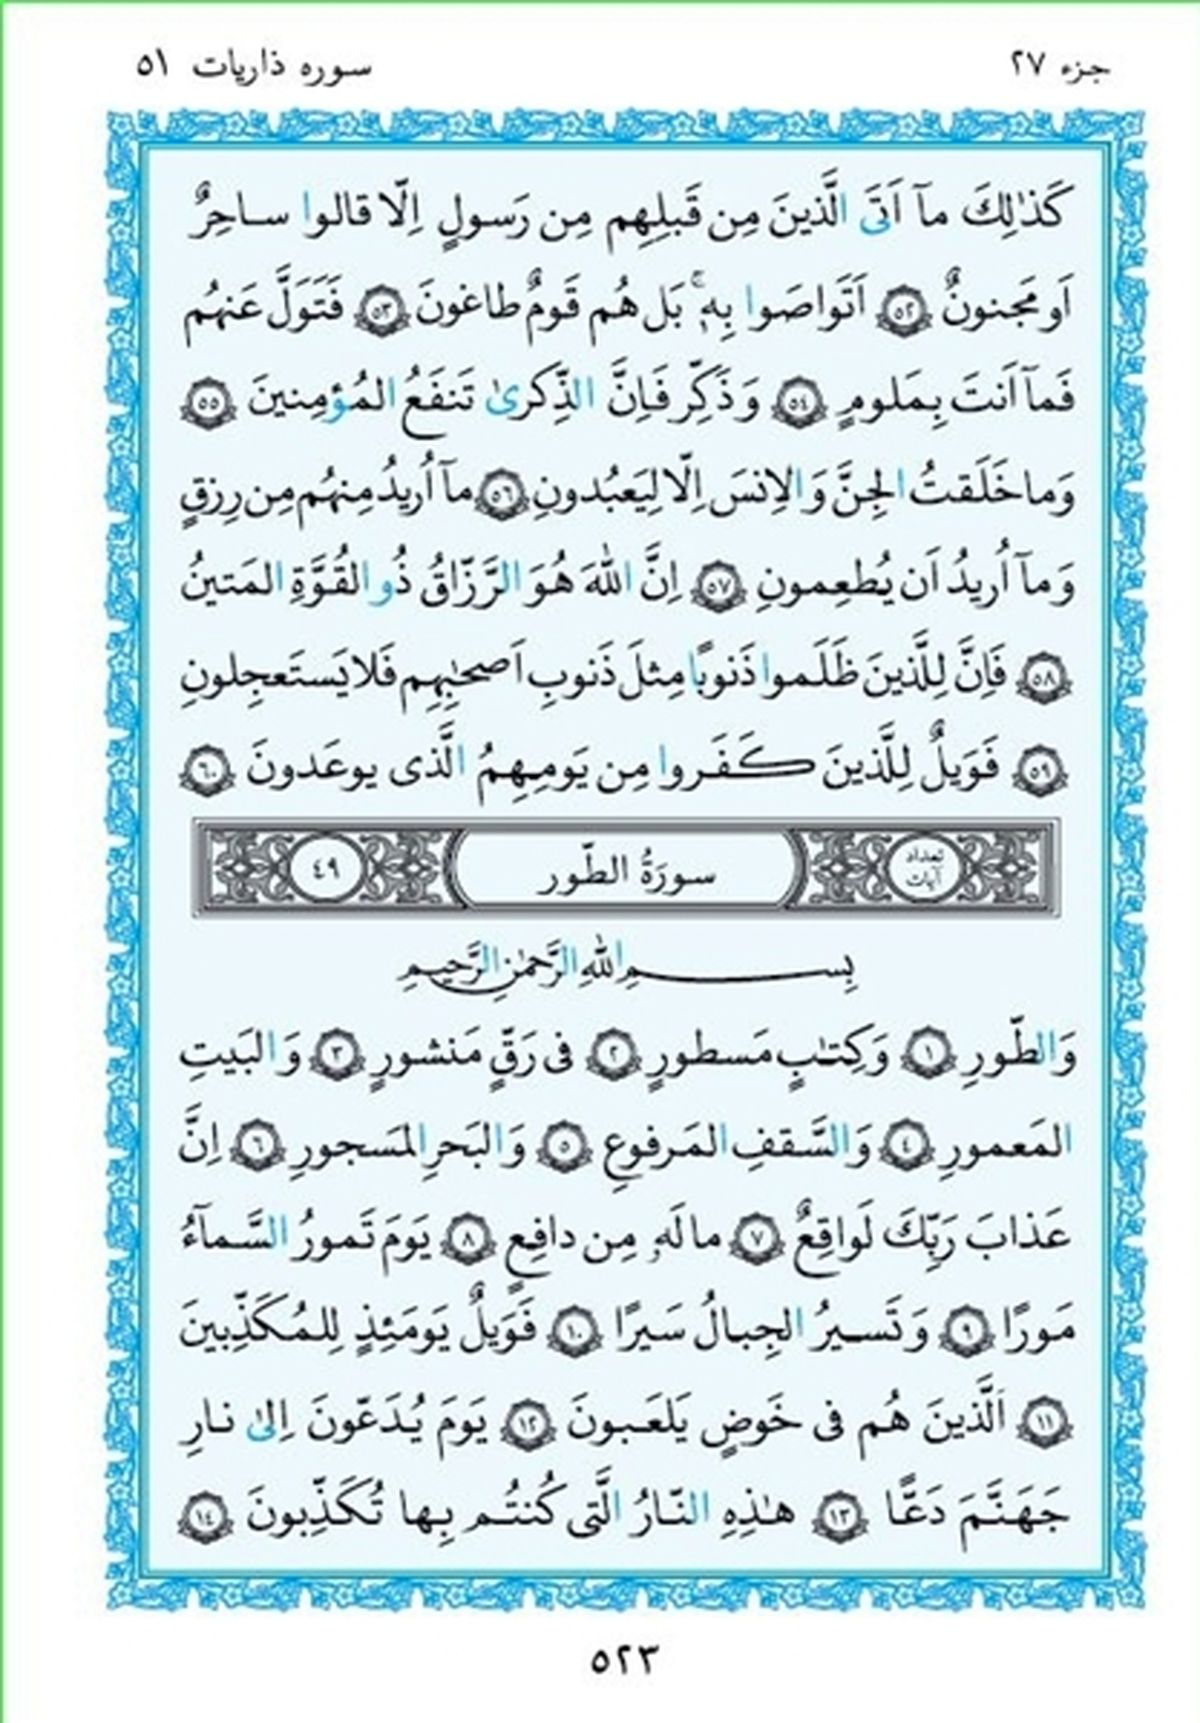 جزء ۲۷
سوره ذاریات ۵۱
كَذٰلِكَ مآ اَتَى الَّذينَ مِن قَبلِهِم مِن رَسولٍ اِلّا قالوا ساحِرٌ
اَو مَجنونٌ ﴿٥٢﴾ اَتَواصَوا بِهٖۚ بَل هُم قَومٌ طاغونَ ﴿٥٣﴾ فَتَوَلَّ عَنهُم
فَمآ اَنتَ بِمَلومٍ ﴿٥٤﴾ وَ ذَكِّر فَاِنَّ الذِّكرىٰ تَنفَعُ المُؤمِنينَ ﴿٥٥﴾
وَ ما خَلَقتُ الجِنَّ وَ الاِنسَ اِلّا لِيَعبُدونِ ﴿٥٦﴾ مآ اُريدُ مِنهُم مِن رِزقٍ
وَ مآ اُريدُ اَن يُطعِمونِ ﴿٥٧﴾ اِنَّ اللهَ هُوَ الرَّزّاقُ ذُو القُوَّةِ المَتينُ
﴿٥٨﴾ فَاِنَّ لِلَّذينَ ظَلَموا ذَنوبًا مِثلَ ذَنوبِ اَصحٰبِهِم فَلا يَستَعجِلونِ
﴿٥٩﴾ فَوَيلٌ لِلَّذينَ كَفَروا مِن يَومِهِمُ الَّذى يوعَدونَ ﴿٦٠﴾
تعداد آیات سورَةُ الطّور ٤٩
بِسمِ اللهِ الرَّحمٰنِ الرَّحيمِ
وَ الطّورِ ﴿١﴾ وَ كِتٰبٍ مَسطورٍ ﴿٢﴾ فى رَقٍّ مَنشورٍ ﴿٣﴾ وَ البَيتِ
المَعمورِ ﴿٤﴾ وَ السَّقفِ المَرفوعِ ﴿٥﴾ وَ البَحرِ المَسجورِ ﴿٦﴾ اِنَّ
عَذابَ رَبِّكَ لَواقِعٌ ﴿٧﴾ ما لَهٗ مِن دافِعٍ ﴿٨﴾ يَومَ تَمورُ السَّمآءُ
مَورًا ﴿٩﴾ وَ تَسيرُ الجِبالُ سَيرًا ﴿١٠﴾ فَوَيلٌ يَومَئِذٍ لِلمُكَذِّبينَ
﴿١١﴾ اَلَّذينَ هُم فى خَوضٍ يَلعَبونَ ﴿١٢﴾ يَومَ يُدَعّونَ اِلىٰ نارِ
جَهَنَّمَ دَعًّا ﴿١٣﴾ هٰذِهِ النّارُ الَّتى كُنتُم بِها تُكَذِّبونَ ﴿١٤﴾
٥٢٣